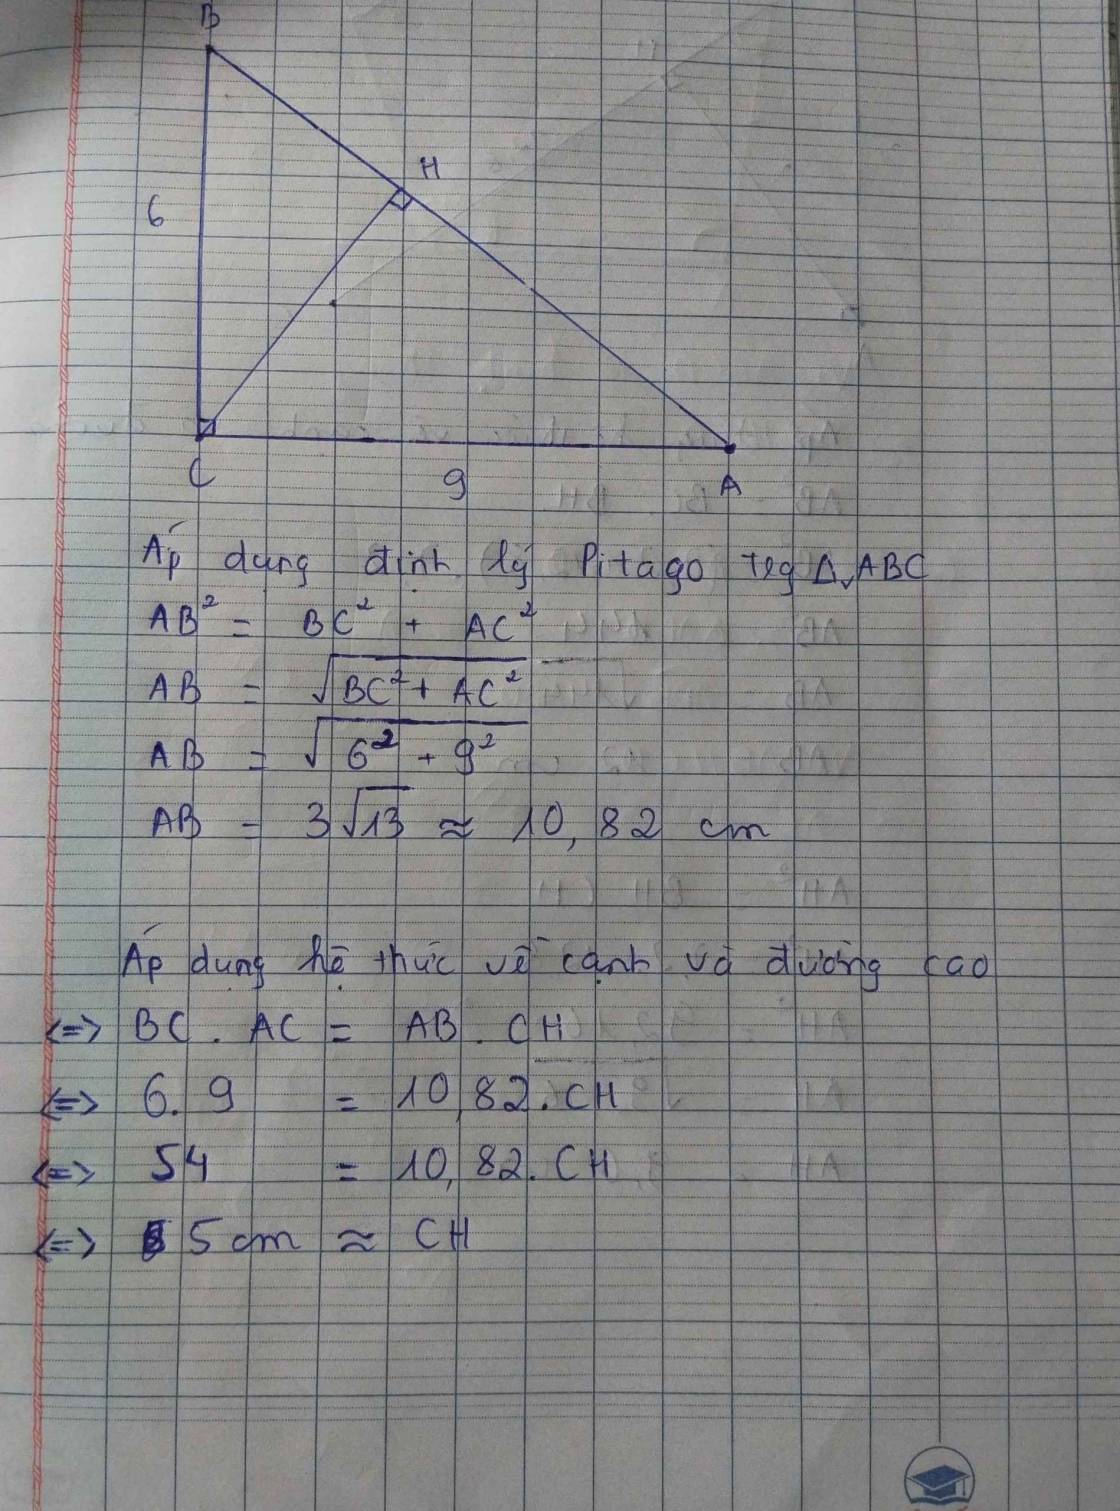 B
H
6
C
9
A
Áp dụng định lý Pitago tag Δv ABC
AB² = BC² + AC²
AB = √BC² + AC²
AB = √6² + 9²
AB = 3√13 ≈ 10,82 cm
Áp dụng hệ thức về cạnh và đường cao
<=> BC . AC = AB . CH
<=> 6. 9 = 10,82. CH
<=> 54 = 10,82. CH
<=> 5 cm ≈ CH